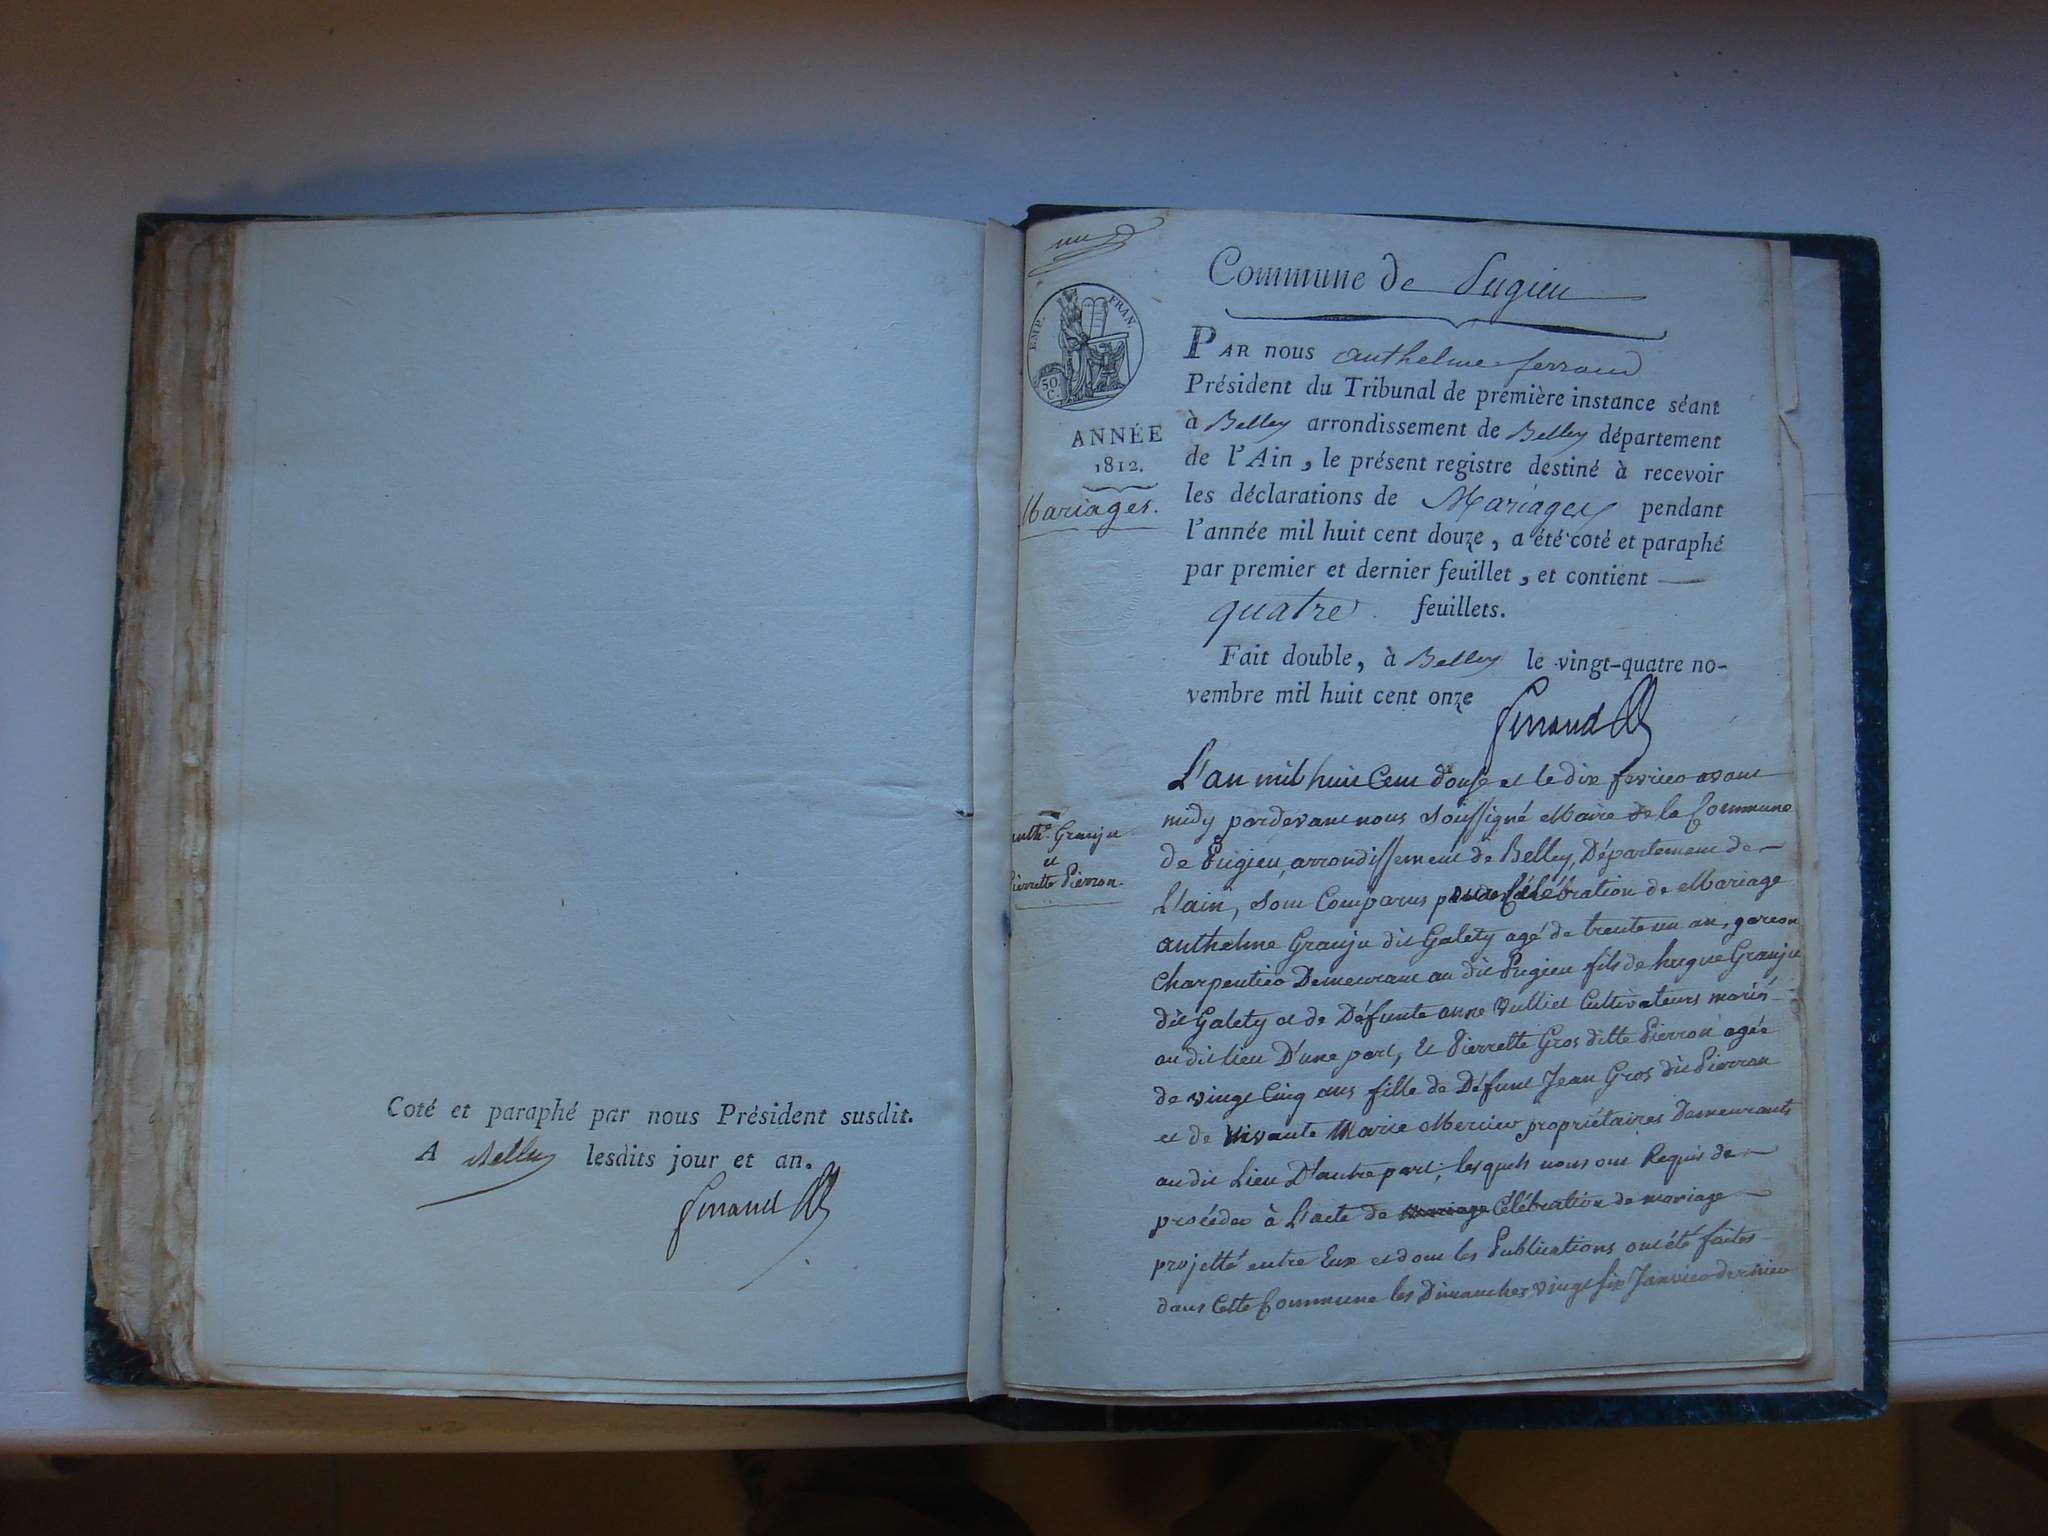 Coté et paraphé par nous Président susdit.
A Belley lesdits jour et an.
Ferrand
un
EMP. FRAN.
50 C.
ANNÉE
1812.
Mariages.
Commune de Pugieu
PAR nous anthelme ferrand
Président du Tribunal de première instance séant
à Belley arrondissement de Belley département
de l'Ain, le présent registre destiné à recevoir
les déclarations de Mariages pendant
l'année mil huit cent douze, a été coté et paraphé
par premier et dernier feuillet, et contient
quatre feuillets.
Fait double, à Belley le vingt-quatre no-
vembre mil huit cent onze
Ferrand
anth.e Granju
et
Pierrette Pierron.
L'an mil huit Cent douse et le dix fevrier avant
midy pardevant nous Soussigné Maire de la Commune
de Pugieu, arrondissement de Belley, Département de
L'ain, sont Comparus pour Célébration de Mariage
anthelme Granju dit Galety agé de trente un an, garcon
Charpentier Demeurant au dit Pugieu fils de hugue Granju
dit Galety et de Défunte anne Vulliet Cultivateurs mariés
au dit lieu D'une part, Et Pierrette Gros ditte Pierron agée
de vingt Cinq ans fille de Défunt Jean Gros dit Pierron
et de vivante Marie Mercier propriétaires Demeurants
au dit Lieu D'autre part; lesquels nous ont Requis de
procéder à L'acte de Mariage Célébration de mariage
projetté entre Eux et dont les Publications ont été faites
dans Cette Commune les Dimanches vingt six Janvier dernier